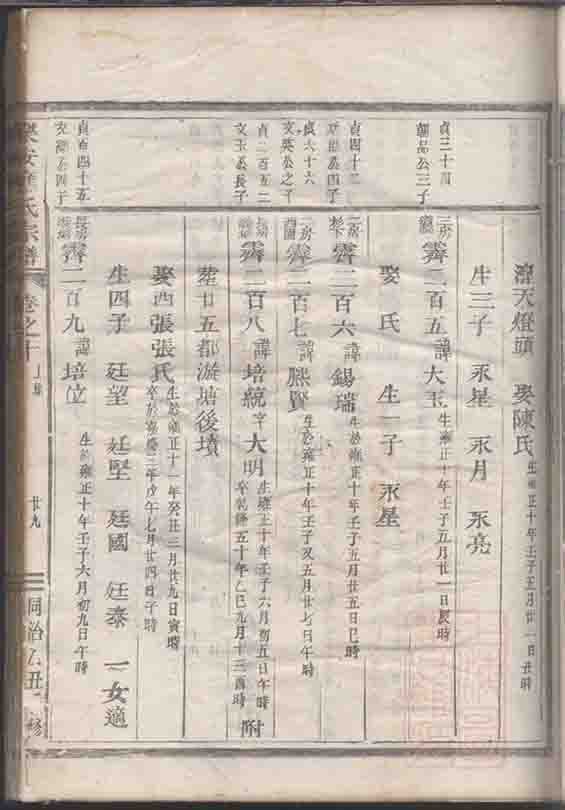 溜天燈頭 娶陳氏 生雍正十年壬子五月廿一日丑時
生三子 永星 永月 永亮
貞三十四
朝品公三子
三房 霽二百五 諱大玉 生雍正十年壬子五月廿一日辰時
娶 氏 生一子 永星
貞四十三
公四子
二房 霽二百六 諱錫瑞 生於雍正十年壬子五月廿五日巳時
貞六十六
文英公之子
二房 霽二百七 諱勝賢 生於雍正十年壬子又五月廿七日午時
貞一百五二
文玉公長子
長房 霽二百八 諱培統 字大明 生雍正十年壬子六月初五日午時 卒乾隆五十年乙巳九月十三酉時 附
葬廿五都漩塘後墳
娶西張張氏 生於雍正十一年癸丑三月廿九日寅時 卒於嘉慶三年戊午七月廿四日子時
生四子 廷望 廷堅 廷國 廷泰 一女適
貞百四十五
文 公四子
長房 霽二百九 諱培位 生於雍正十年壬子六月初九日午時
氏宗譜 卷之十 上 廿九 同治乙丑 修